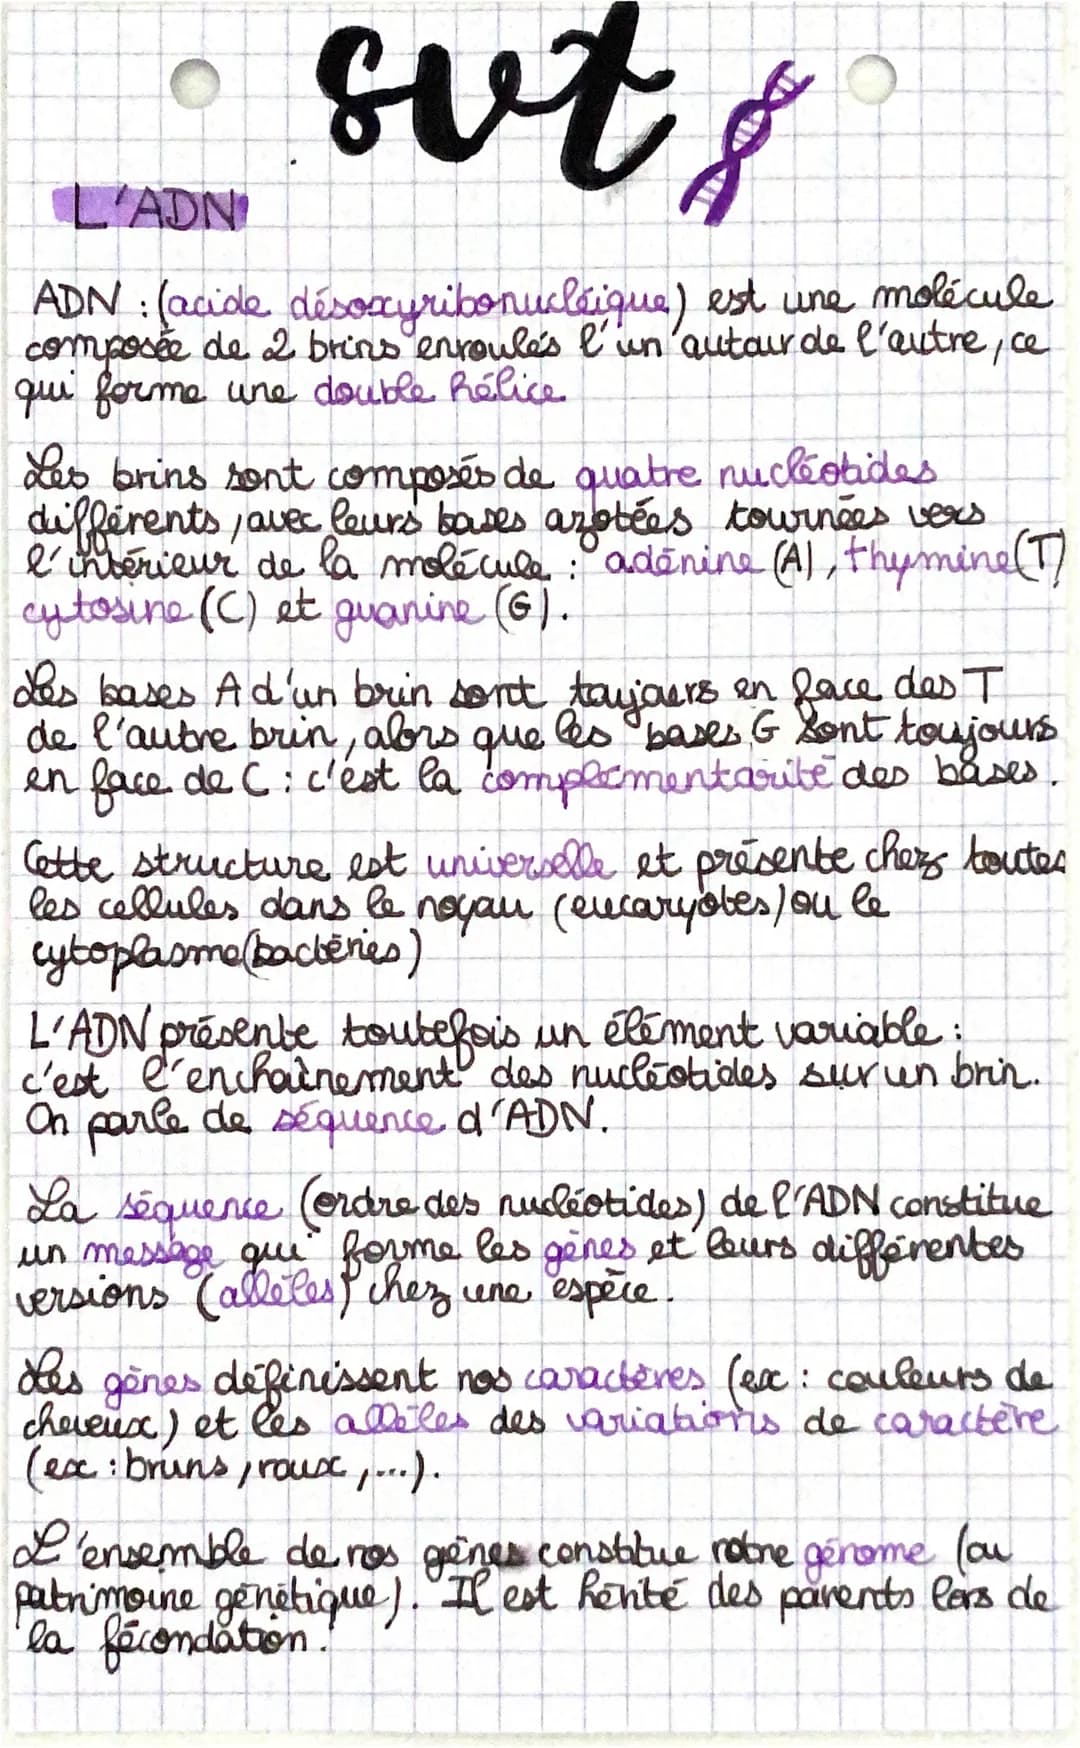 svt
L'ADN
ADN : (acide désoxyribonucléique) est une molécule
composée de 2 brins enroulés l'un autour de l'autre, ce
qui forme une double hélice
Les brins sont composés de quatre nucléotides
différents, avec leurs bases azotées tournées vers
l'intérieur de la molécule : adénine (A), thymine (T)
cytosine (C) et guanine (G).
Les bases A d'un brin sont toujours en face des T
de l'autre brin, alors que les bases G sont toujours
en face de C : c'est la complémentarité des bases.
Cette structure est universelle et présente chez toutes
les cellules dans le noyau (eucaryotes) ou le
cytoplasme (bactéries)
L'ADN présente toutefois un élément variable :
c'est l'enchaînement des nucléotides sur un brin.
On parle de séquence d'ADN.
La séquence (ordre des nucléotides) de l'ADN constitue
un message qui forme les gènes et leurs différentes
versions (allèles) chez une espèce.
Les gènes définissent nos caractères (ex : couleurs de
cheveux) et les allèles des variations de caractère
(ex : bruns, roux, ...).
L'ensemble de nos gènes constitue notre génome (ou
patrimoine génétique). Il est hérité des parents lors de
la fécondation.